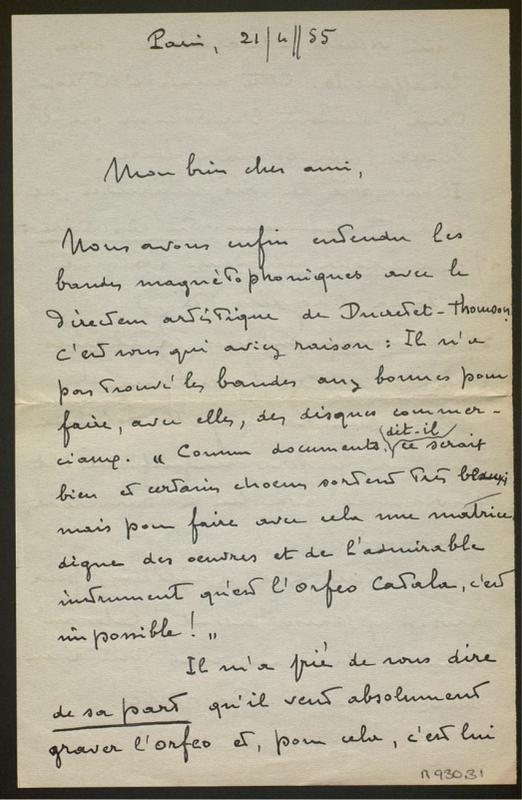 Paris, 21/4//55
Mon bien cher ami,
Nous avons enfin entendu les
bandes magnétophoniques avec le
directeur artistique de Ducretet-Thomson
c'est vous qui aviez raison : Il n'a
pas trouvé les bandes assez bonnes pour
faire, avec elles, des disques commer-
ciaux. " Comme documents, dit-il, ce serait
bien et certains choeurs sortent très beaux,
mais pour faire avec cela une matrice
digne des oeuvres et de l'admirable
instrument qu'est l'Orfeo Català, c'est
impossible ! "
Il m'a prié de vous dire
de sa part qu'il veut absolument
graver l'Orfeo et, pour cela, c'est lui
R 930.31